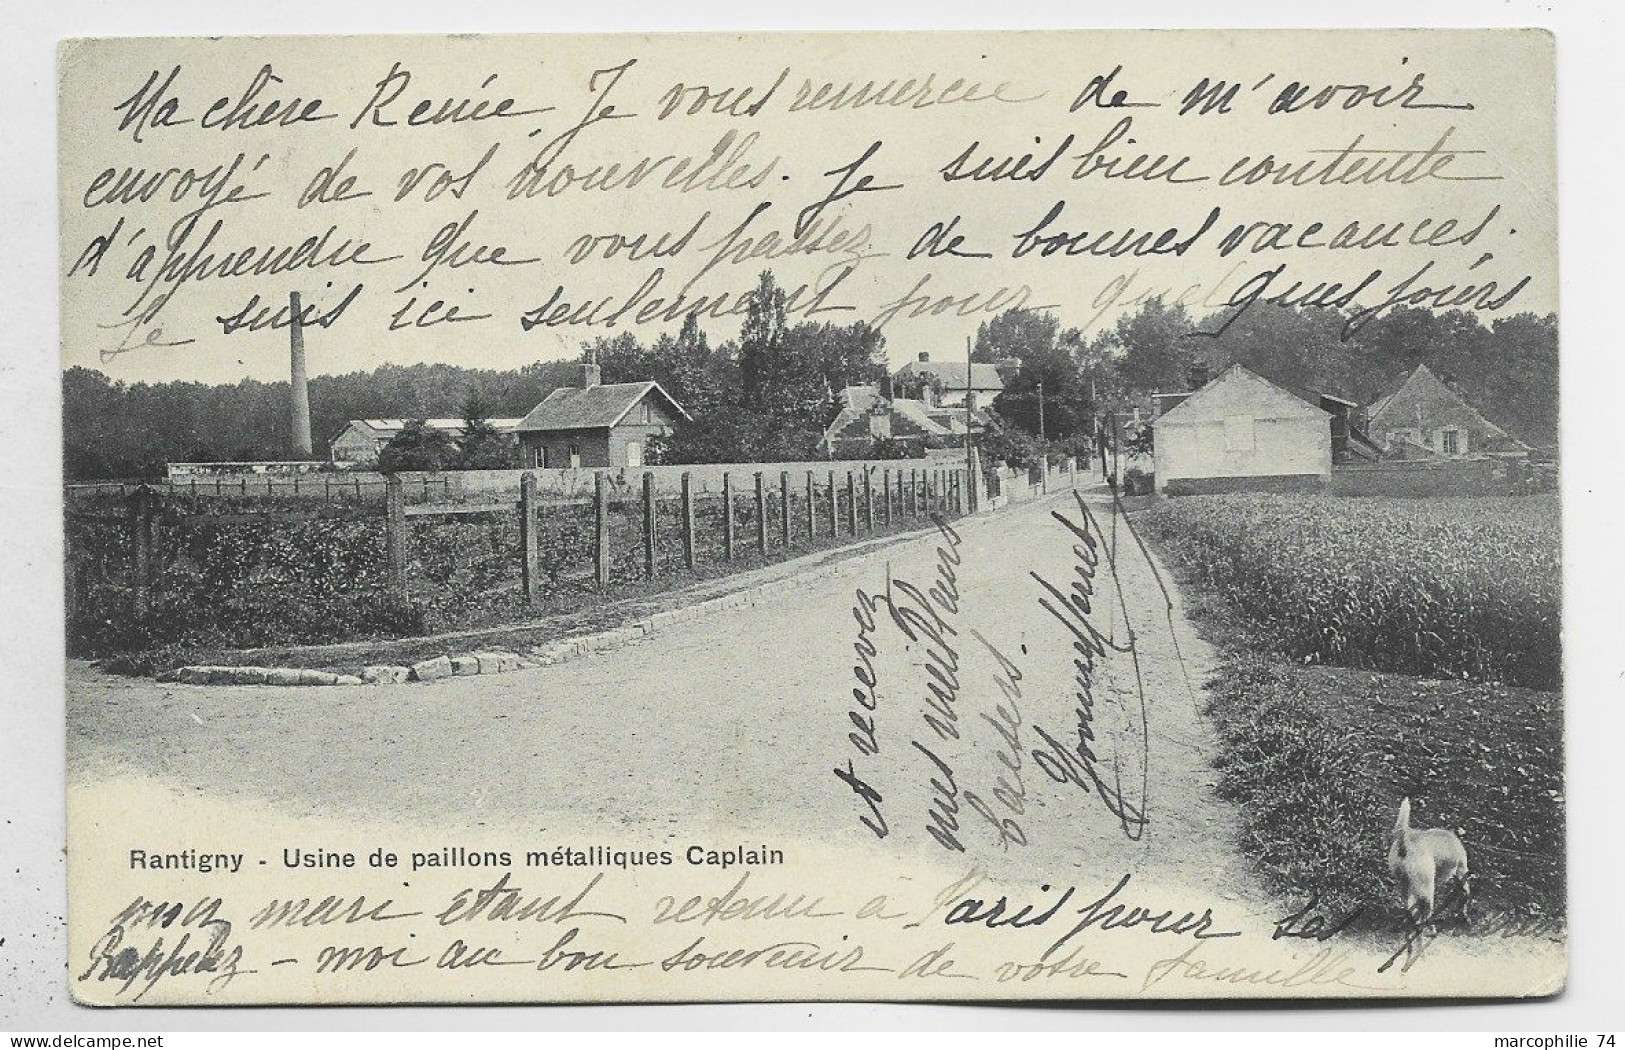 Ma chère Renée, Je vous remercie de m'avoir
envoyé de vos nouvelles. Je suis bien contente
d'apprendre que vous passez de bonnes vacances.
Je suis ici seulement pour quelques jours
et recevez
mes meilleurs
baisers.
Yvonne
Rantigny - Usine de paillons métalliques Caplain
mon mari étant retenu à Paris pour ses
Rappelez-moi au bon souvenir de votre famille
marcophilie 74
delcampe.net